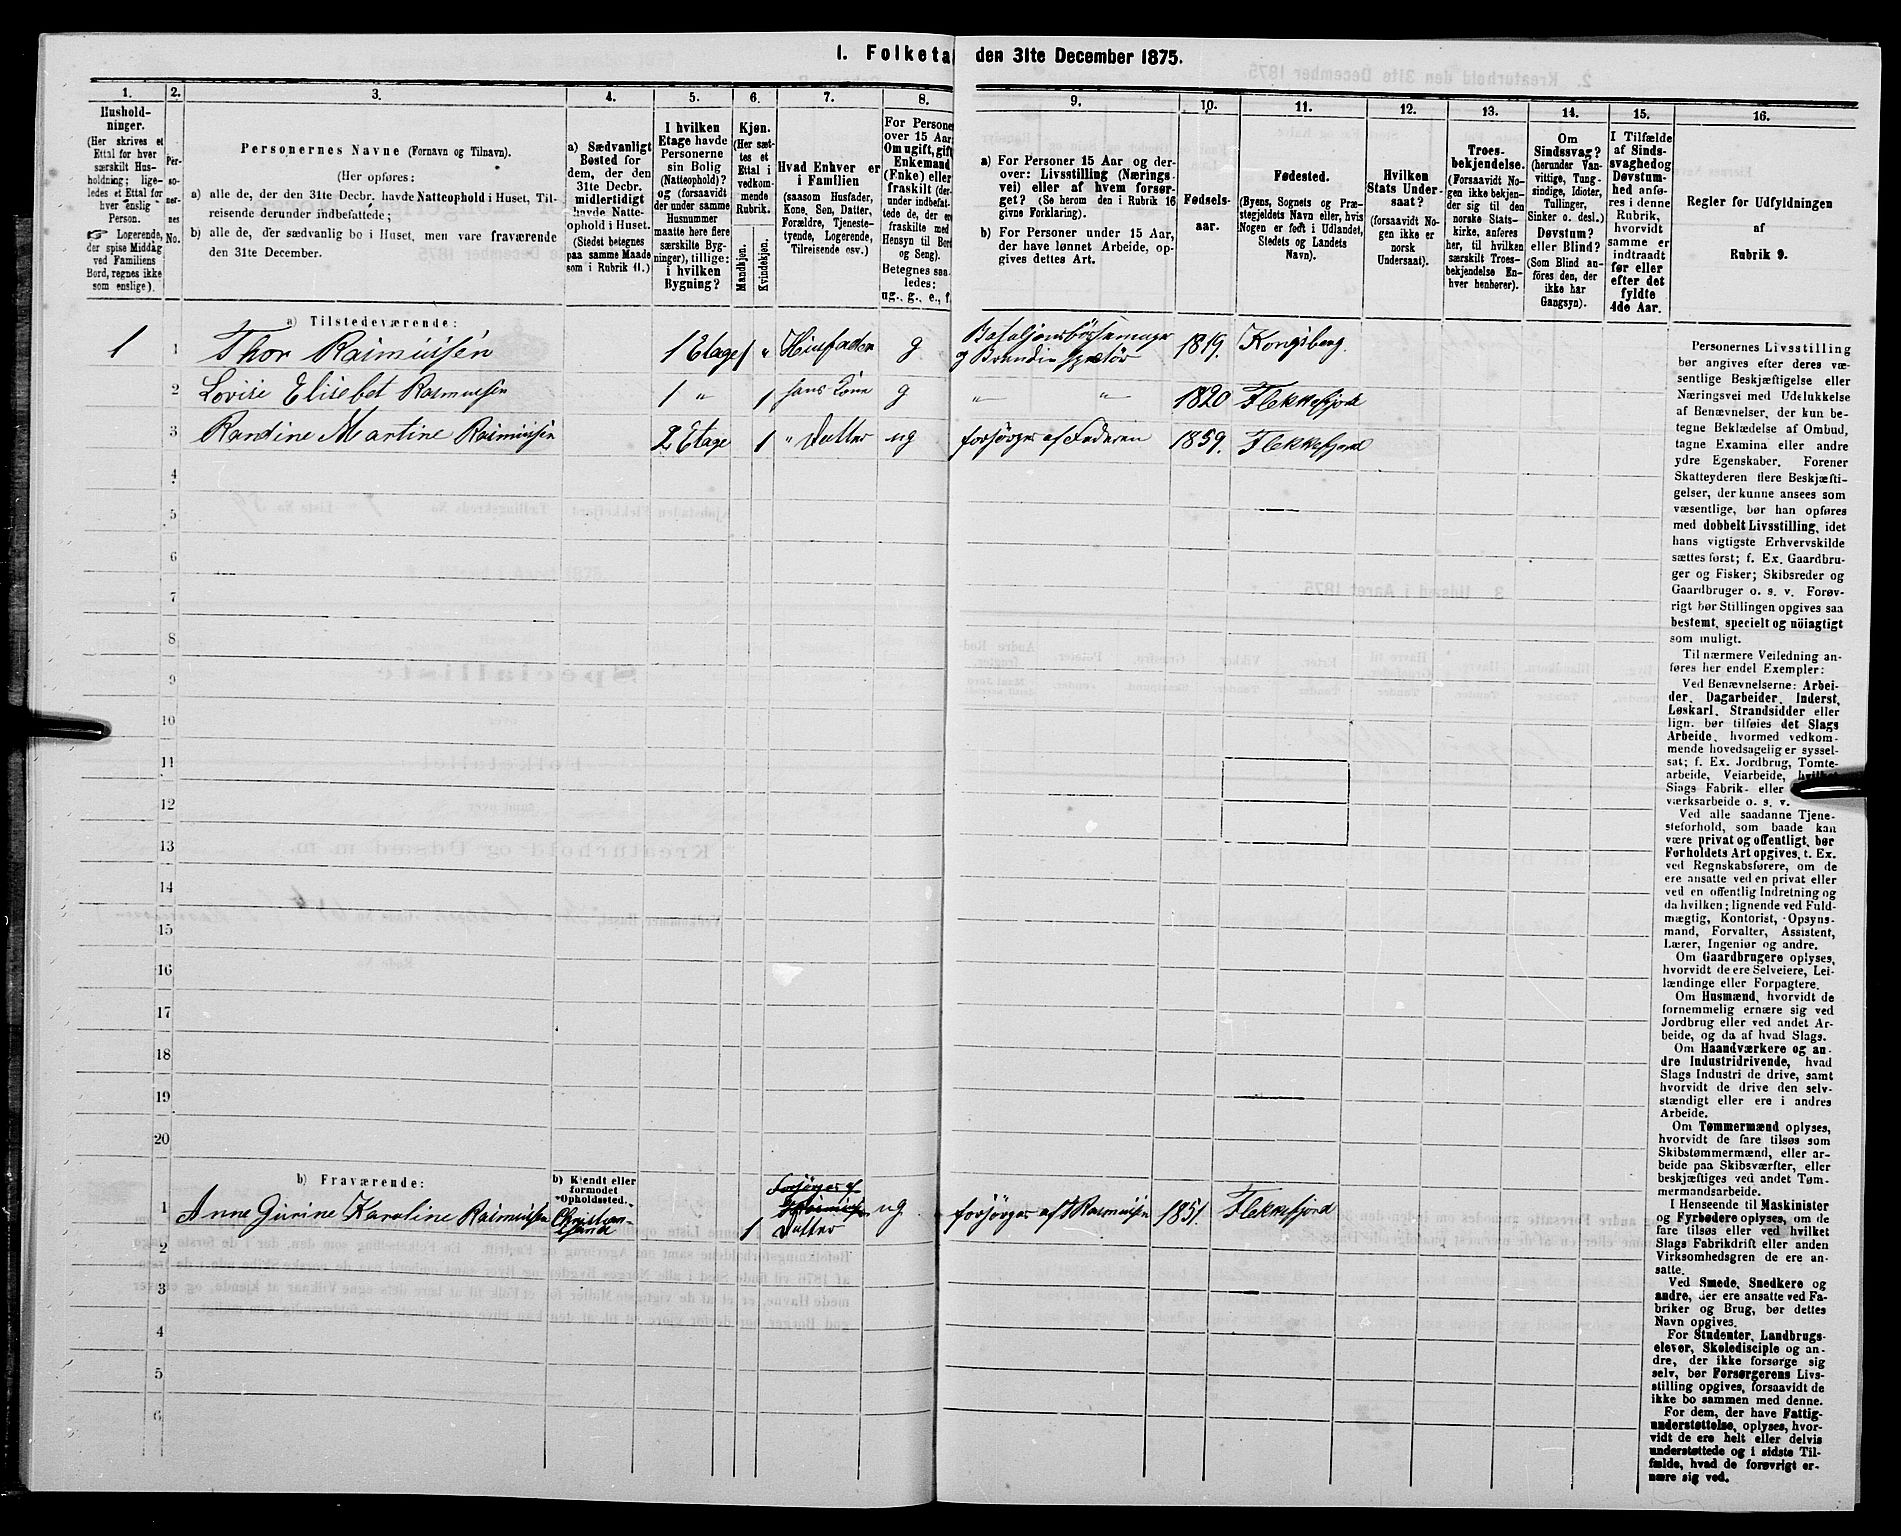 I. Folketa den 31te December 1875.
1. 2. 3. 4. 5. 6. 7. 8. 9. 10. 11. 12. 13. 14. 15. 16.
Hushold-
ninger.
(Her skrives et
Ettal for hver
særskilt Hus-
holdning; lige-
ledes et Ettal for
hver enslig
Person.
☞ Logerende,
der spise Middag
ved Familiens
Bord, regnes ikke
som enslige).
Per-
so-
ner-
nes
No.
Personernes Navne (Fornavn og Tilnavn).
(Her opføres:
a) alle de, der den 31te Decbr. havde Natteophold i Huset, Til-
reisende derunder indbefattede;
b) alle de, der sædvanlig bo i Huset, men vare fraværende
den 31te December.
a) Sædvanligt
Bosted for
dem, der den
31te Decbr.
midlertidigt
havde Natte-
ophold i Huset.
(Stedet betegnes
paa samme Maade
som i Rubrik 11.)
I hvilken
Etage havde
Personerne
sin Bolig
(Natteophold)?
og (forsaavidt
der under samme
Husnummer
maatte høre flere
særskilte Byg-
ninger), tillige:
i hvilken
Bygning?
Kjøn.
(Her sæt-
tes et
Ettal i
vedkom-
mende
Rubrik.
Mandkjøn.
Kvindekjøn.
Hvad Enhver er
i Familien
(saasom Husfader,
Kone, Søn, Datter,
Forældre, Tjeneste-
tyende, Logerende,
Tilreisende osv.)
For Persone
over 15 Aar
Om ugift, gift
Enkemand
(Enke) eller
fraskilt (der-
under indbefat-
tede de, der ere
fraskilte med
Hensyn til Bord
og Seng).
Betegnes saa-
ledes:
ug., g., e., f.
a) For Personer 15 Aar og der-
over: Livsstilling (Nærings-
vei) eller af hvem forsør-
get? (Se herom den i Rubrik 16
givne Forklaring).
b) For Personer under 15 Aar,
der have lønnet Arbeide, op-
gives dettes Art.
Fødsels-
aar.
Fødested.
(Byens, Sognets og Præ-
stegjeldets Navn eller, hvis
Nogen er født i Udlandet,
Stedets og Landets
Navn).
Hvilken
Stats Under-
saat?
(forsaavidt No-
gen ikke er
norsk
Undersaat).
Troes-
bekjendelse.
(Forsaavidt No-
gen ikke bekjen-
der sig til den
norske Stats-
kirke, anføres
her, til hvilken
særskilt Troes-
bekjendelse En-
hver henhører).
Om
Sindssvag?
(herunder Van-
vittige, Tung-
sindige, Idioter,
Tullinger,
Sinker o. desl.)
Døvstum?
eller Blind?
(Som Blind an-
føres den, der
ikke har
Gangsyn).
I Tilfælde
af Sinds-
svaghed og
Døvstum-
hed anfø-
res i denne
Rubrik,
hvorvidt
samme er
indtraadt
før eller
efter det
fyldte
4de Aar.
Regler for Udfyldningen
af
Rubrik 9.
a) Tilstedeværende:
1 1 Thor Rasmusen 1 Etage 1 „ Husfader g 1819. Kongsberg.
2 Lovise Elisebet Rasmusen 1 „ 1 hans Kone g „ „ 1820 Flekkefjord
3 Randine Martine Rasmusen 2 Etage 1 „ Datter ug forsørges af Faderen 1859. Flekkefjord
4
5
6
7
8
9
10
11
12
13
14
15
16
17
18
19
20
b) Fraværende:
b) Kjendt eller
formodet
Opholdssted.
1 Anne Gurine Karoline Rasmusen Christian- 1 Datter ug forsørges af T Rasmusen 1851. Flekkefjord
2
3
4
5
6
Personernes Livsstilling
bør angives efter deres væ-
sentlige Beskjæftigelse eller
Næringsvei med Udelukkelse
af Benævnelser, der kun be-
tegne Beklædelse af Ombud,
tagne Examina eller andre
ydre Egenskaber. Forener
Skatteyderen flere Beskjæfti-
gelser, der kunne ansees som
væsentlige, bør han opføres
med dobbelt Livsstilling, idet
hans vigtigste Erhvervskilde
sættes først; f. Ex. Gaardbru-
ger og Fisker; Skibsreder og
Gaardbruger o. s. v. Forøv-
rigt bør Stillingen opgives saa
bestemt, specielt og nöiagtigt
som muligt.
Til nærmere Veiledning an-
føres her endel Exempler:
Ved Benævnelserne: Arbei-
der, Dagarbeider, Inderst,
Løskarl, Strandsidder eller
lign. bør tilføies det Slags
Arbeide, hvormed vedkom-
mende hovedsagelig er syssel-
sat; f. Ex. Jordbrug, Tomte-
arbeide, Veiarbeide, hvilket
Slags Fabrik- eller
værksarbeide o. s. v.
Ved alle saadanne Tjene-
steforhold, som baade kan
være privat og offentligt, bør
Forholdets Art opgives, t. Ex.
ved Regnskabsførere, om de
ere ansatte ved en privat eller
ved en offentlig Indretning og
da hvilken; lignende ved Fuld-
mægtig, Kontorist, Opsyns-
mand, Forvalter, Assistent,
Lærer, Ingeniør og andre.
Om Gaardbrugere oplyses,
hvorvidt de ere Selveiere, Lei-
lændinge eller Forpagtere.
Om Husmænd, hvorvidt de
fornemmelig ernære sig ved
Jordbrug eller ved andet Ar-
beide, og da af hvad Slags.
Om Haandværkere og an-
dre Industridrivende, hvad
Slags Industri de drive, samt
hvorvidt de drive den selv-
stændigt eller ere i andres
Arbeide.
Om Tømmermænd oplyses,
hvorvidt de fare tilsøs som
Skibstømmermænd, eller ar-
beide paa Skibsværfter, eller
beskjæftiges ved andet Tøm-
mermandsarbeide.
I Henseende til Maskinister
og Fyrbødere oplyses, om de
fare tilsøs eller ved hvilket
Slags Fabrikdrift eller anden
Virksomhedsgren de ere an-
satte.
Ved Smede, Snedkere og
andre, der ere ansatte ved Fa-
briker og Brug, bør dettes
Navn opgives.
For Studenter, Landbrugs-
elever, Skoledisciple og an-
dre, der ikke forsørge sig
selv, bør Forsørgerens Livs-
stilling opgives, forsaavidt de
ikke bo sammen med denne.
For dem, der have Fattig-
understøttelse, oplyses, hvor-
vidt de ere helt eller delvis
understøttede og i sidste Til-
fælde, hvad de forøvrigt er-
nære sig ved.